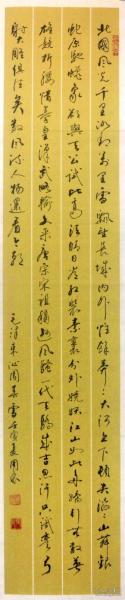 北國風光千里冰封萬里雪飄望長城内外惟餘莽莽大河上下頓失滔滔山舞銀
蛇原馳蠟象欲與天公試比高須晴日看紅裝素裹分外妖嬈江山如此多嬌引無數英
雄競折腰惜秦皇漢武略輸文采唐宗宋祖稍遜風騷一代天驕成吉思汗只識彎弓
射大雕俱往矣數風流人物還看今朝
毛澤東沁園春雪